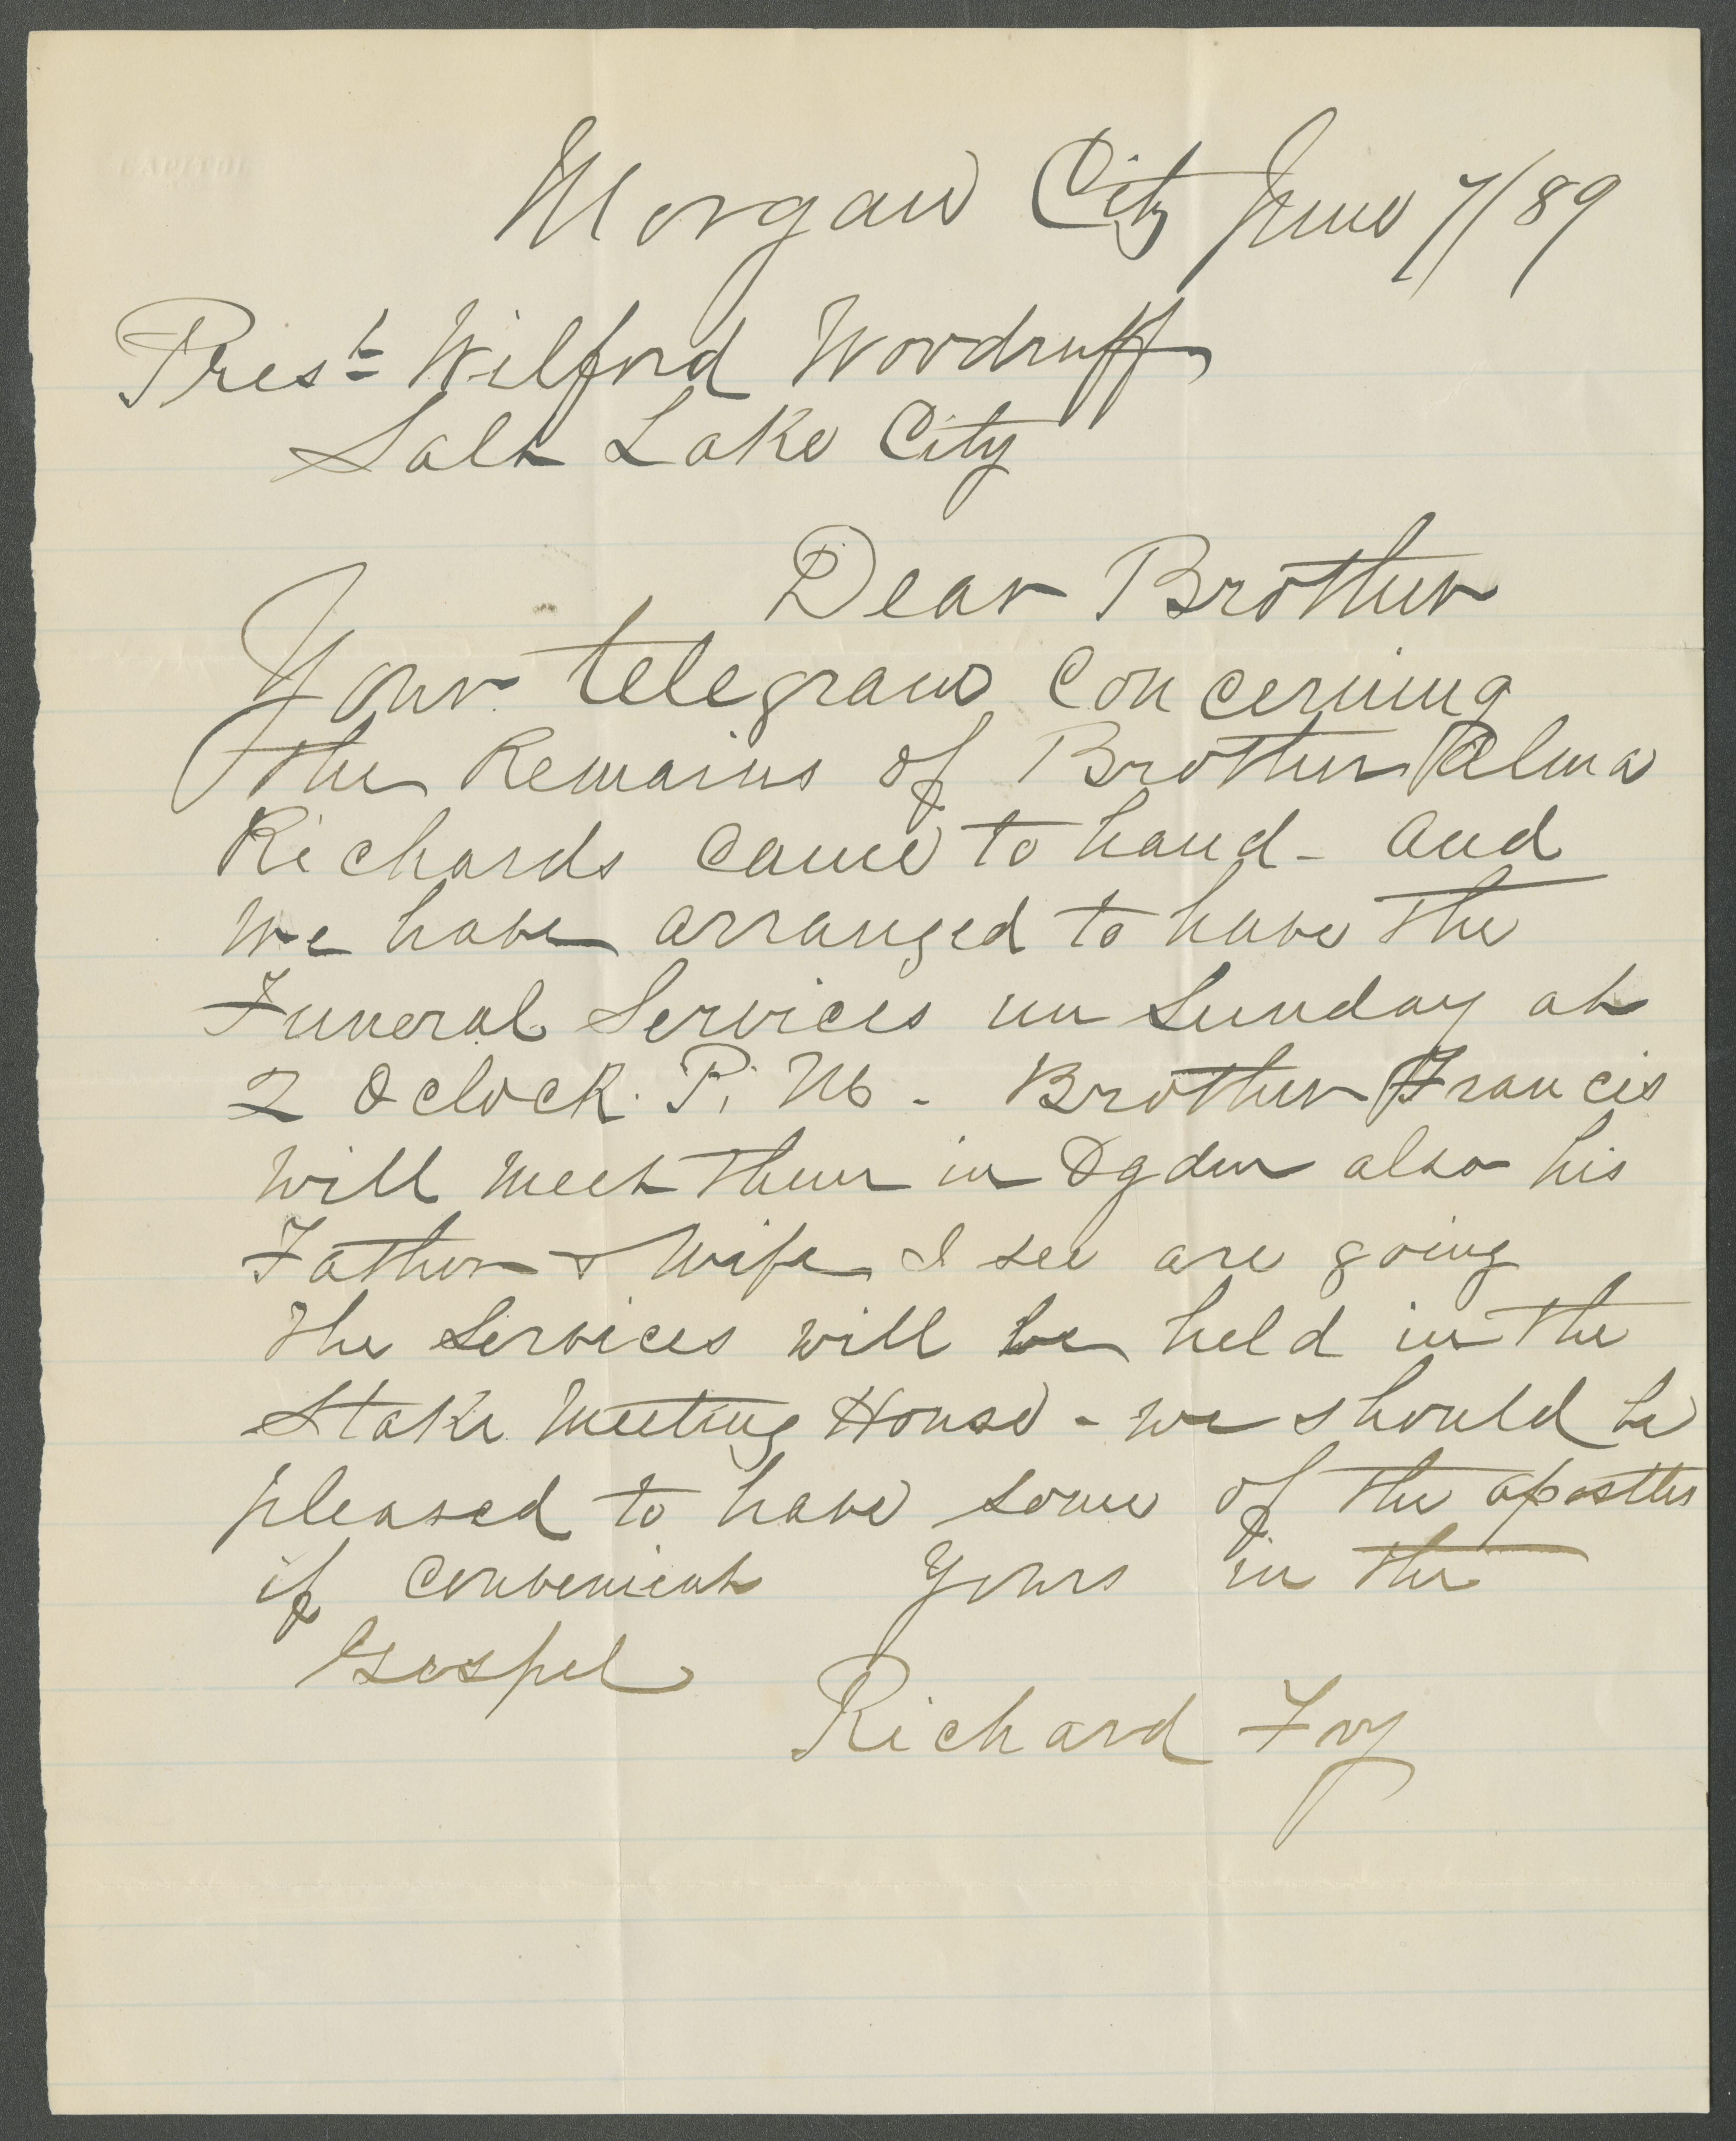 CAPITOL
Morgan City June 7/89
Prest Wilford Woodruff
Salt Lake City
Dear Brother
Your telegram concerning
the Remains of Brother Alma
Richards came to hand - and
We have arranged to have the
Funeral Services on Sunday at
2 Oclock. P. M. - Brother Francis
will meet them in Ogden also his
Father & Wife I see are going
The Services will be held in the
Stake Meeting House - we should be
pleased to have some of the apostles
if convenient Yours in the
Gospel
Richard Fry